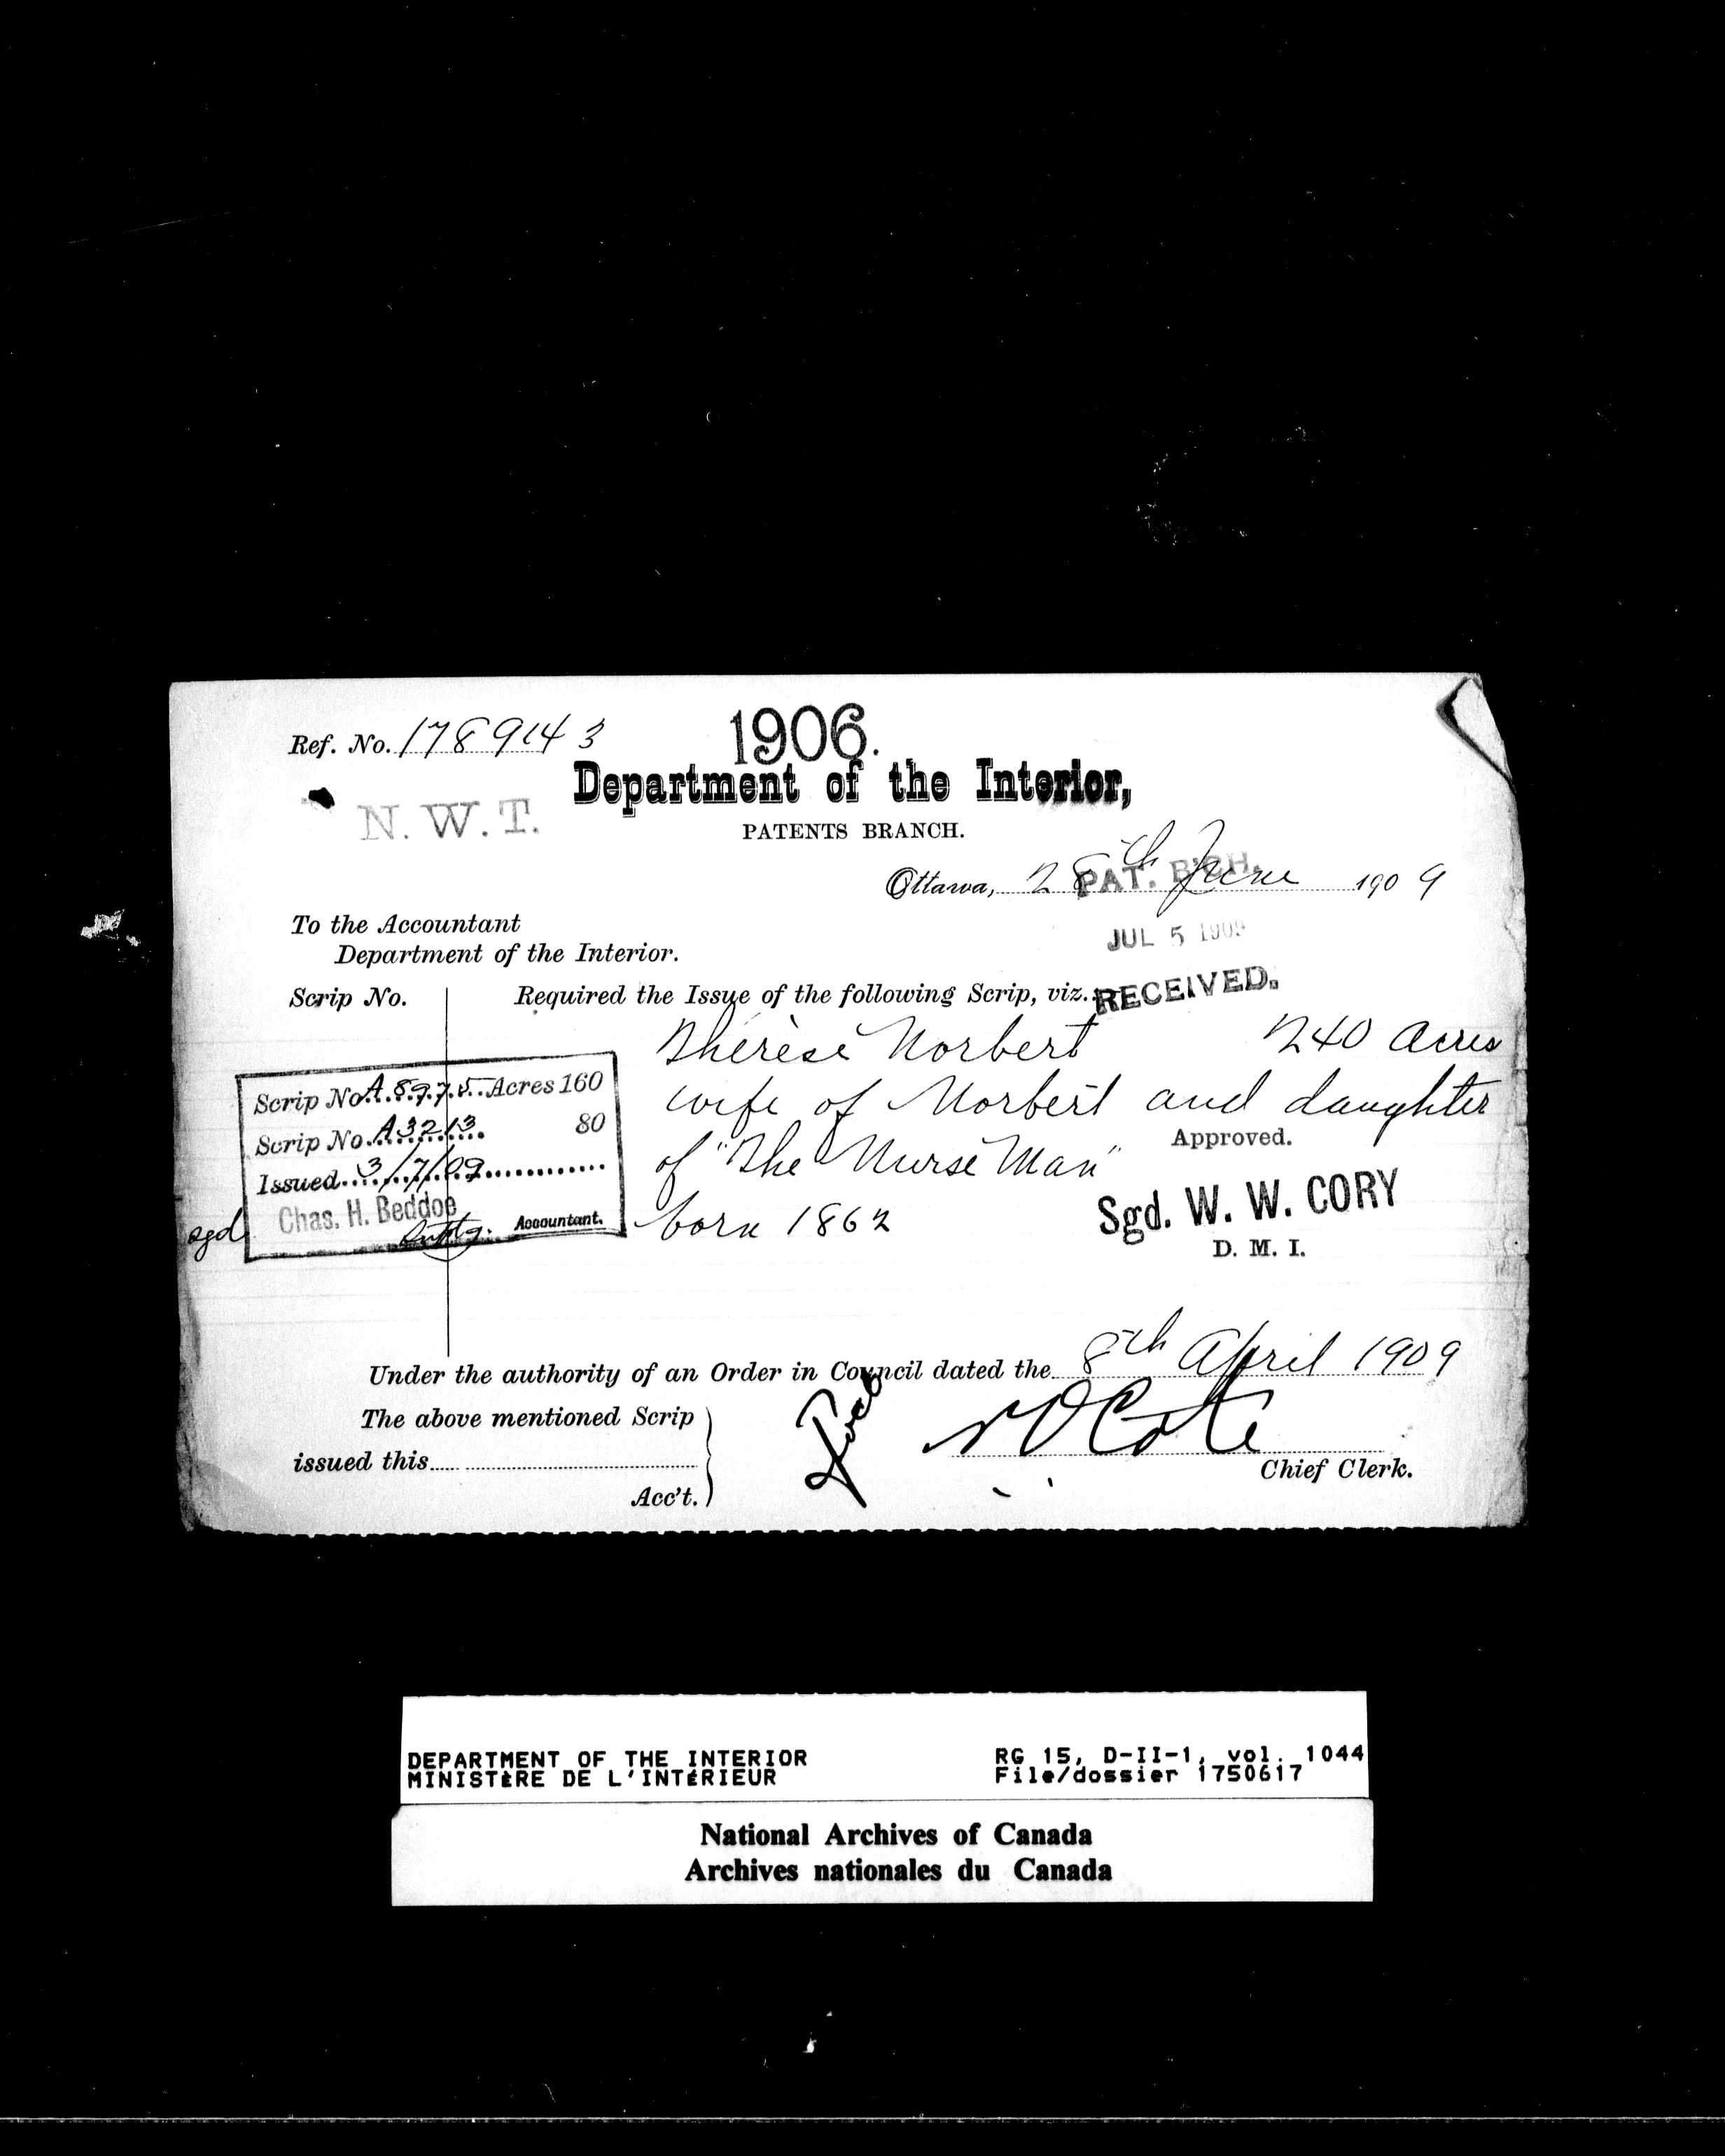 Ref. No. 1789143
1906.
N. W. T.
Department of the Interior,
PATENTS BRANCH.
Ottawa, 28th June 1909
PAT. B'CH.
JUL 5 1909
RECEIVED.
To the Accountant
Department of the Interior.
Scrip No.
Required the Issue of the following Scrip, viz.:
Thérèse Norbert 240 Acres
wife of Norbert and daughter
of "The Nurse Man"
born 1862
Scrip No. A 8975 Acres 160
Scrip No. A 3213 80
Issued 3/7/09
sgd Chas. H. Beddoe
Accountant.
Approved.
Sgd. W. W. CORY
D. M. I.
Under the authority of an Order in Council dated the 8th April 1909
The above mentioned Scrip
issued this
Acc't.
N O Coté
Chief Clerk.
DEPARTMENT OF THE INTERIOR
MINISTÈRE DE L'INTÉRIEUR
RG 15, D-II-1, vol. 1044
File/dossier 1750617
National Archives of Canada
Archives nationales du Canada